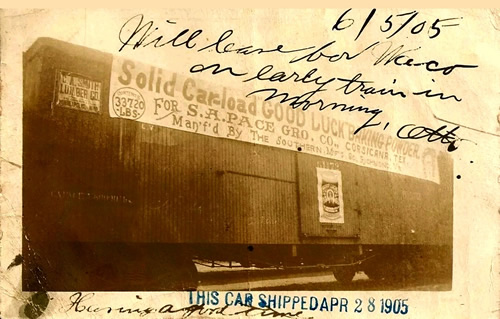 6/5/05
Will leave for Waco
on early train in
morning, Otto.
Solid Car-load GOOD LUCK BAKING POWDER.
33720
LBS.
FOR S.A. PACE GRO. CO., CORSICANA, TEX.
Man'f'd By THE SOUTHERN M'F'G CO. RICHMOND, VA.
LUMBER CO.
THIS CAR SHIPPED APR 28 1905
Having a good time.